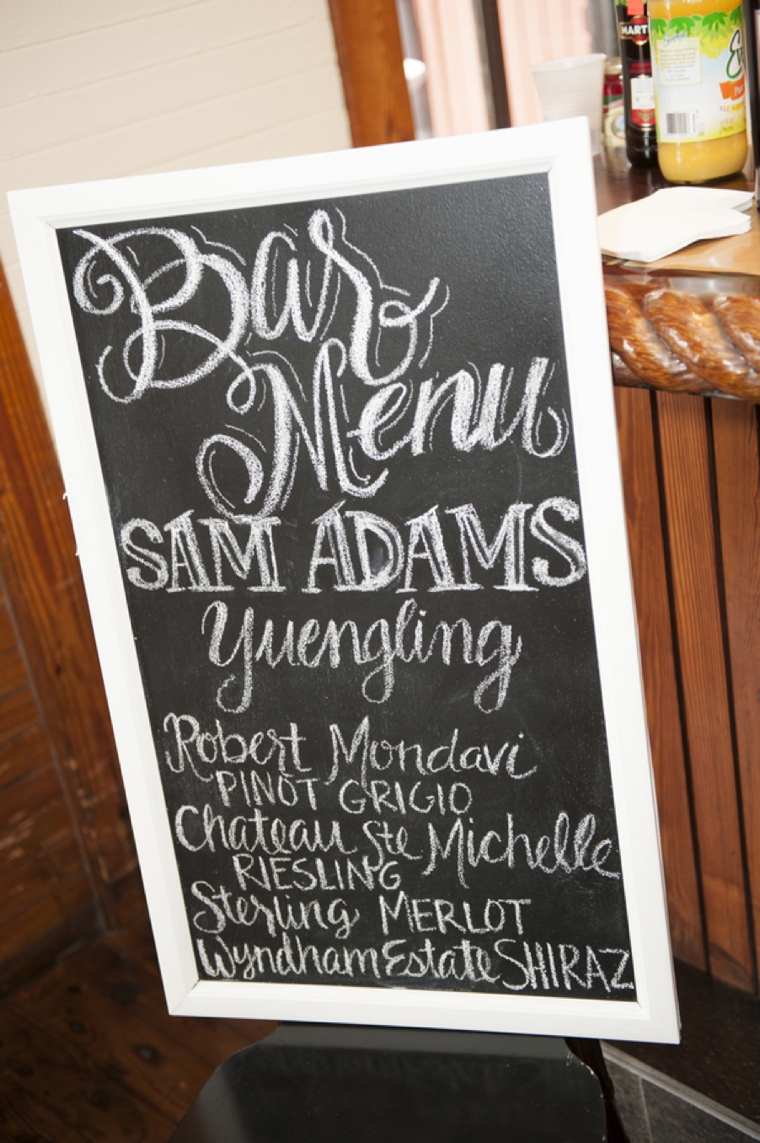 Bar
Menu
SAM ADAMS
Yuengling
Robert Mondavi
PINOT GRIGIO
Chateau Ste Michelle
RIESLING
Sterling MERLOT
Wyndham Estate SHIRAZ
MARTI